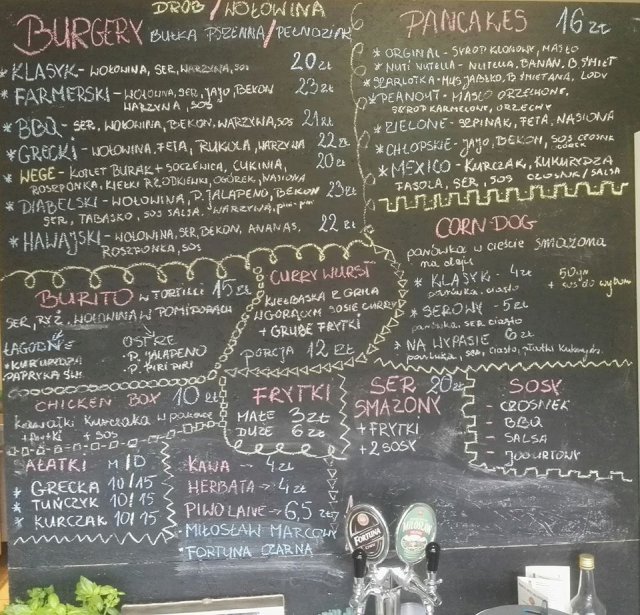 DRÓB/WOŁOWINA
BURGERY BUŁKA PSZENNA/PEŁNOZIAR
* KLASYK - WOŁOWINA, SER, WARZYWA, SOS 20 zł
* FARMERSKI - WOŁOWINA, SER, JAJO, BEKON 23 zł
WARZYWA, SOS
* BBQ - SER, WOŁOWINA, BEKON, WARZYWA, SOS 21 zł
* GRECKI - WOŁOWINA, FETA, RUKOLA, WARZYWA 22 zł
* WEGE - KOTLET BURAK + SOCZEWICA, CUKINIA, 20 zł
ROSZPONKA, KIEŁKI RZODKIEWKI, OGÓREK, NASIONA
* DIABELSKI - WOŁOWINA, P. JALAPENO, BEKON 23 zł
SER, TABASKO, SOS SALSA, WARZYWA, piri-piri
* HAWAJSKI - WOŁOWINA, SER, BEKON, ANANAS, 22 zł
ROSZPONKA, SOS
PANCAKES 16 zł
* ORGINAL - SYROP KLONOWY, MASŁO
* NUTI NUTELLA - NUTELLA, BANAN, B. ŚMIET
* SZARLOTKA - MUS JABŁKO, B. ŚMIETANA, LODY
* PEANOUT - MASŁO ORZECHOWE,
SYROP KARMELOWY, ORZECHY
* ZIELONE - SZPINAK, FETA, NASIONA
* CHŁOPSKIE - JAJO, BEKON, SOS CZOSNK
* MEXICO - KURCZAK, KUKURYDZA
FASOLA, SER, SOS CZOSNK/SALSA
CORN-DOG
parówka w cieście smażona
na oleju
* KLASYK - 4 zł
parówka, ciasto
+ sos do wyboru
* SEROWY - 5 zł
parówka, ser, ciasto
* NA WYPASIE 6 zł
parówka, ser, ciasto, płatki kukurydz.
BURITO W TORTILLI 15 zł
SER, RYŻ, WOŁOWINA W POMIDORACH
ŁAGODNE
* KUKURYDZA
PAPRYKA ŚW.
OSTRE
· P. JALAPENO
· P. PIRI PIRI
CURRYWURST
KIEŁBASKA Z GRILA
W GORĄCYM SOSIE CURRY
+ GRUBE FRYTKI
PORCJA 12 zł
CHICKEN BOX 10 zł
Kawałki kurczaka w panierce
+ FRYTKI + SOS
FRYTKI
MAŁE 3 zł
DUŻE 6 zł
SER 20 zł
SMAŻONY
+ FRYTKI
+ 2 SOSY
SOSY
- CZOSNEK
- BBQ
- SALSA
- JOGURTOWY
AŁATKI M/D
* GRECKA 10/15
* TUŃCZYK 10/15
* KURCZAK 10/15
KAWA → 4 zł
HERBATA → 4 zł
PIWO LANE → 6,5 zł
· MIŁOSŁAW MARCOWY
· FORTUNA CZARNA
FORTUNA
MIŁOSŁAW